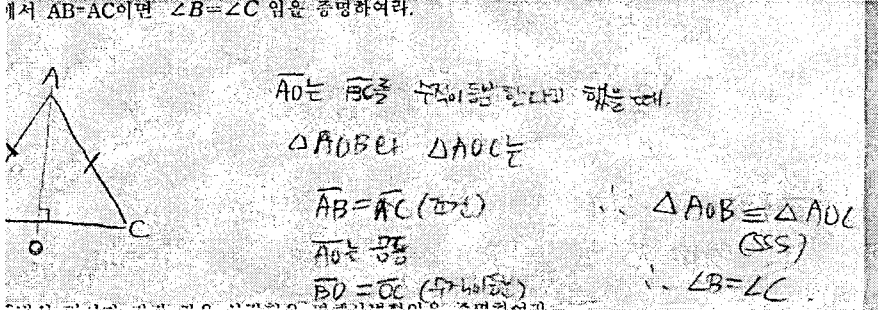 에서 AB=AC이면 ∠B=∠C 임을 증명하여라.
A
C
O
AO는 BC를 수직이등분 한다고 했을 때.
△AOB와 △AOC는
AB=AC (조건)
AO는 공통
BO=OC (수직이등분)
∴ △AOB≡△AOC
(SSS)
∴ ∠B=∠C
증명하여라